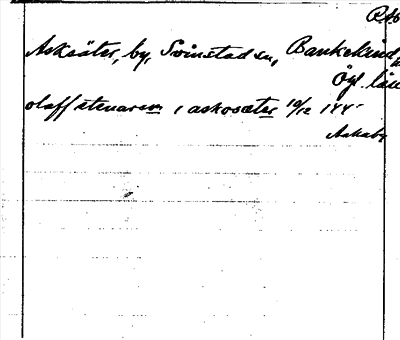 Asksäter, by, Svinstad sn, Bankekind
Ög. län
olaff stenarem i askosæter 10/12 144
Askaby